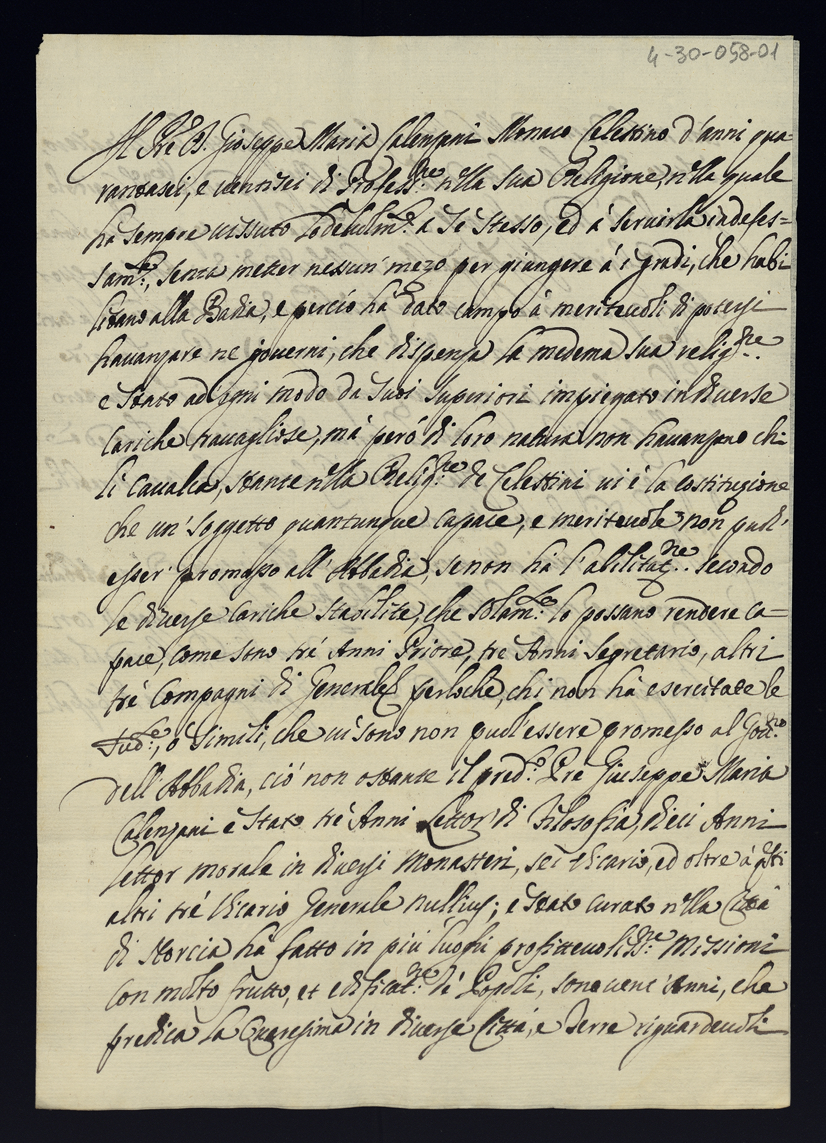 4-30-058-01
Il Pre D. Giuseppe Maria Calenzani Monaco Celestino d'anni qua=
rantasei, e ventisei di Profess.ne nella sua Religione, nella quale
ha sempre vissuto lodevolm.te a se stesso, ed à servirla indefes=
sam.te, senza metter nessun mezo per giungere à i gradi, che habi
litano alla Badia, e perciò ha dato campo à meritevoli di potersi
havanzare ne governi, che dispensa la medema sua relig.ne
e stato ad ogni modo da suoi superiori impiegato in diverse
cariche travagliose, mà però di loro natura non havanzano chi
li cavalca, stante nella Relig.ne de Celestini vi è la costituzione
che un' soggetto quantunque capace, e meritevole non puol'
esser' promosso all'Abbadia, se non ha l'abilitaz.ne secondo
le diverse cariche stabilite, che solam.te lo possano rendere ca=
pace, come sono tré Anni Priore, tre Anni Segretario, altri
tré Compagni di Generale, perloche, chi non ha esercitate le
sud.e, ò simili, che vi sono non puol essere promosso al Gov.no
dell'Abbadia, ciò non ostante il pred.o Pre Giuseppe Maria
Calenzani è stato tré Anni Lettor di Filosofia, dieci Anni
lettor morale in diversi Monasteri, sei Vicario, ed oltre à q.sti
altri tré Vicario Generale nullius; e stato curato nella Città
di Norcia ha fatto in più luoghi profittevoli Missioni
con molto frutto, et edificat.ne de Popoli, sono venti Anni, che
predica la Quaresima in diverse Città, e Terre riguardevoli